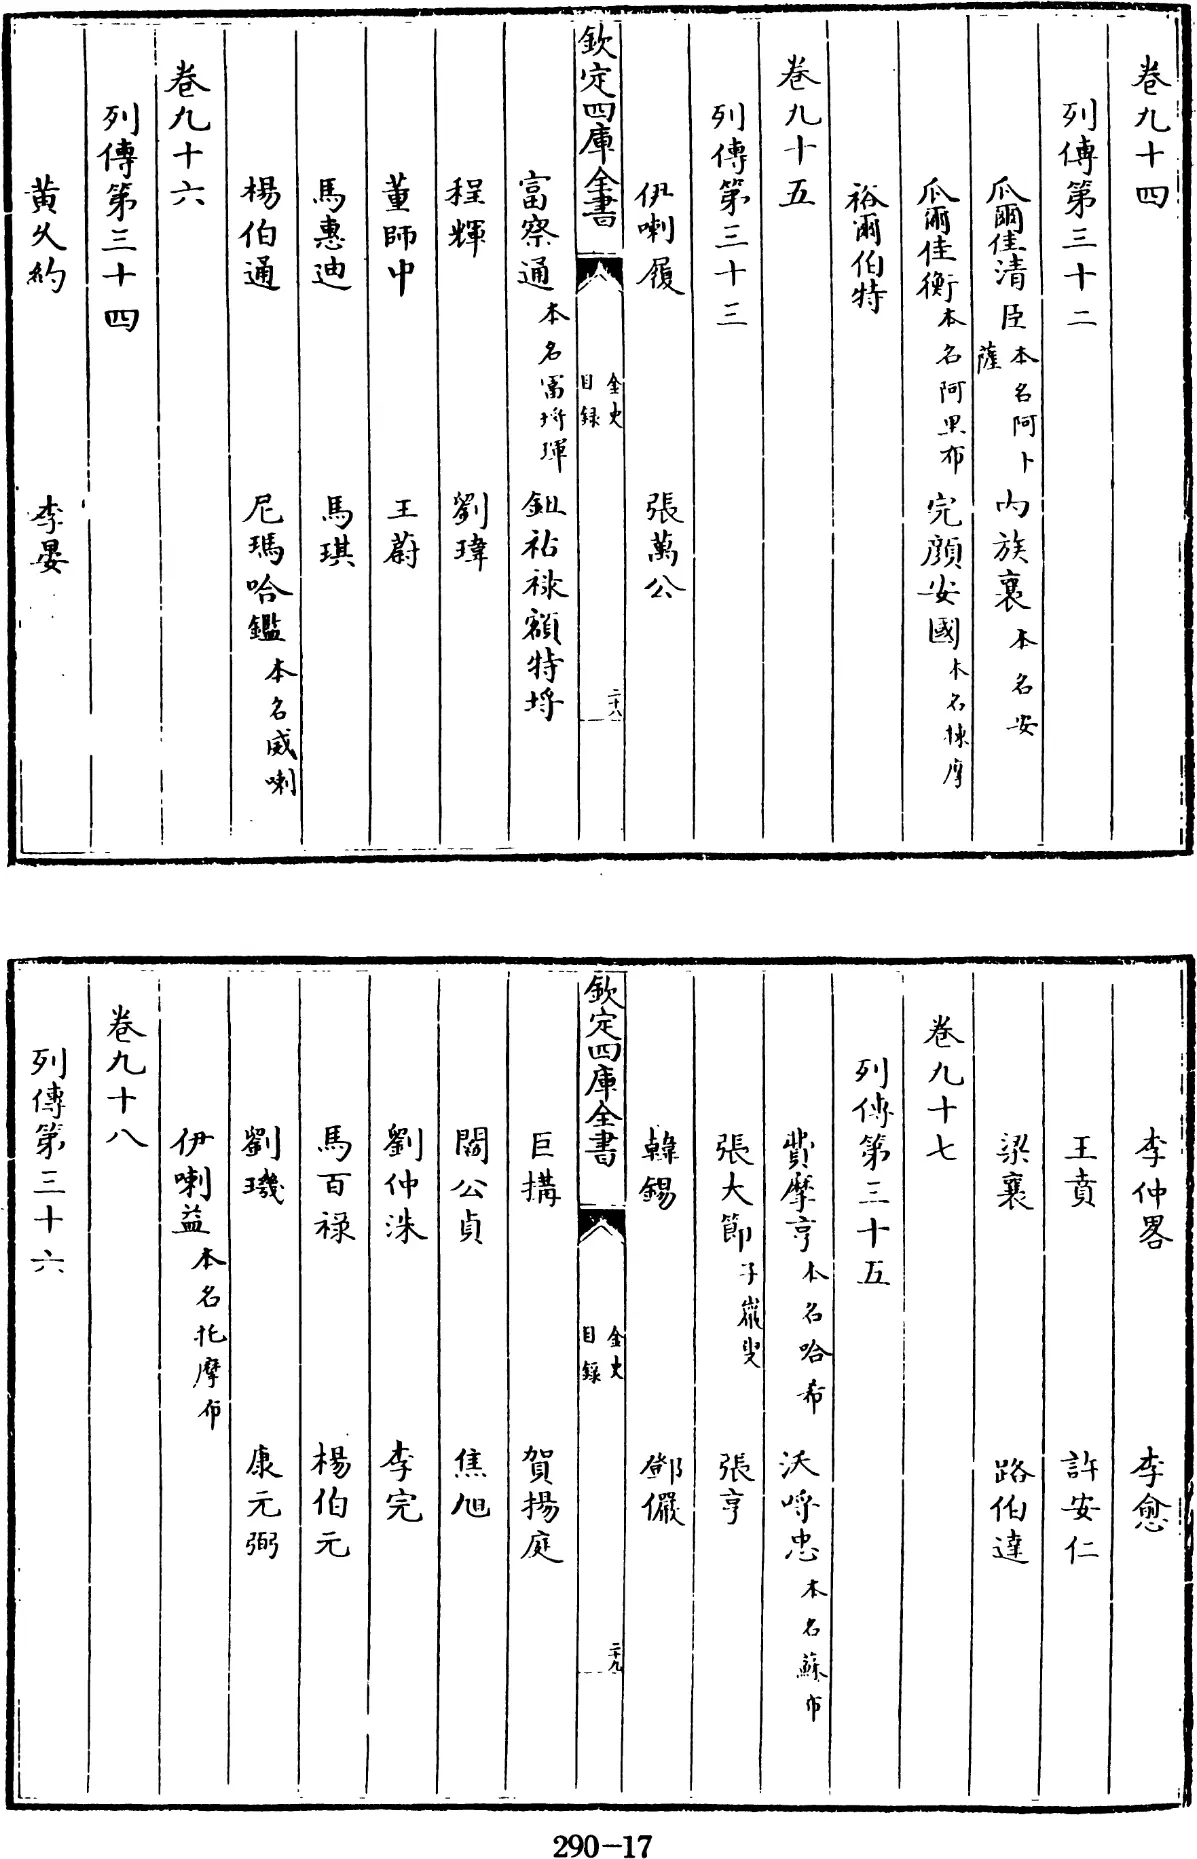 卷九十四
列傳第三十二
瓜爾佳清臣本名阿卜薩　內族襄本名安
瓜爾佳衡本名阿里布　完顔安國本名棟摩
裕爾伯特
卷九十五
列傳第三十三
伊喇履　張萬公
欽定四庫全書　金史目録　二十八
富察通本名富埒琿　鈕祜祿額特埒
程輝　劉瑋
董師中　王蔚
馬惠迪　馬琪
楊伯通　尼瑪哈鑑本名威喇
卷九十六
列傳第三十四
黃久約　李晏
李仲畧　李愈
王賁　許安仁
梁襄　路伯達
卷九十七
列傳第三十五
費摩亨本名哈希　沃哷忠本名蘇布
張大節子嵓叟　張亨
韓錫　鄧儼
欽定四庫全書　金史目録　二十九
巨搆　賀揚庭
閻公貞　焦旭
劉仲洙　李完
馬百祿　楊伯元
劉璣　康元弼
伊喇益本名托摩布
卷九十八
列傳第三十六
290-17